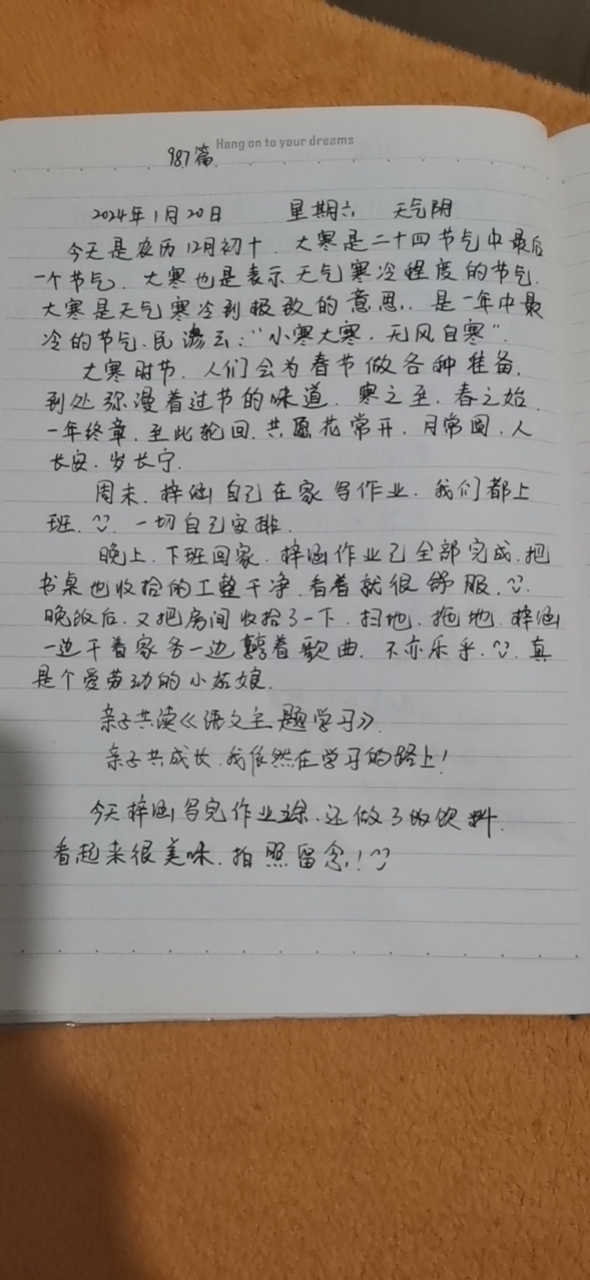 Hang on to your dreams
987篇
2024年1月20日 星期六 天气阴
今天是农历12月初十. 大寒是二十四节气中最后
一个节气. 大寒也是表示天气寒冷程度的节气.
大寒是天气寒冷到极致的意思.. 是一年中最
冷的节气. 民谚云:“小寒大寒. 无风自寒”.
大寒时节. 人们会为春节做各种准备.
到处弥漫着过节的味道. 寒之至. 春之始.
一年终章. 至此轮回. 共愿花常开. 月常圆. 人
长安. 岁长宁.
周末. 梓涵自己在家写作业. 我们都上
班. 一切自己安排.
晚上. 下班回家. 梓涵作业已全部完成. 把
书桌也收拾的工整干净. 看着就很舒服.
晚饭后. 又把房间收拾了一下. 扫地. 拖地. 梓涵
一边干着家务一边听着歌曲. 不亦乐乎. 真
是个爱劳动的小姑娘.
亲子共读《语文主题学习》.
亲子共成长. 我依然在学习的路上!
今天梓涵写完作业. 还做了饮料.
看起来很美味. 拍照留念!